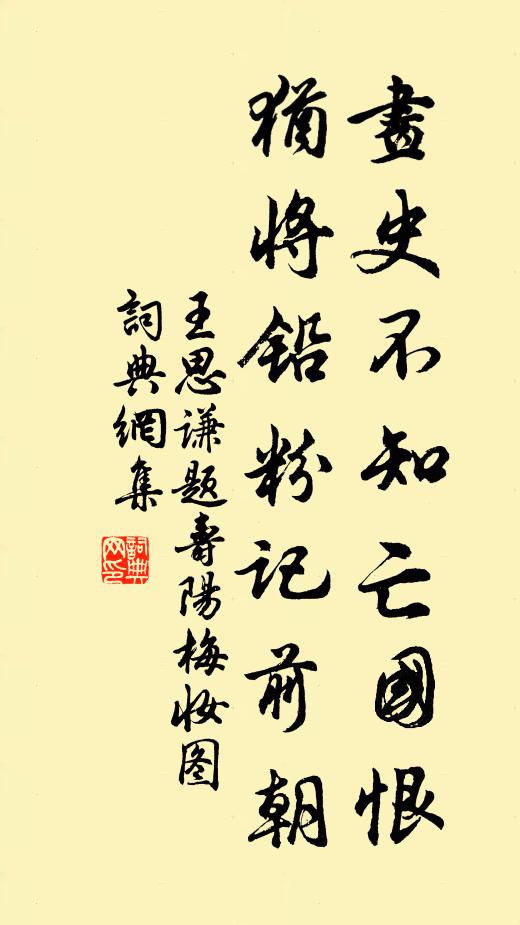 畫史不知亡國恨
猶將鉛粉記前朝
王思谦题壽陽梅妝图
詞典網集
詞典
网印